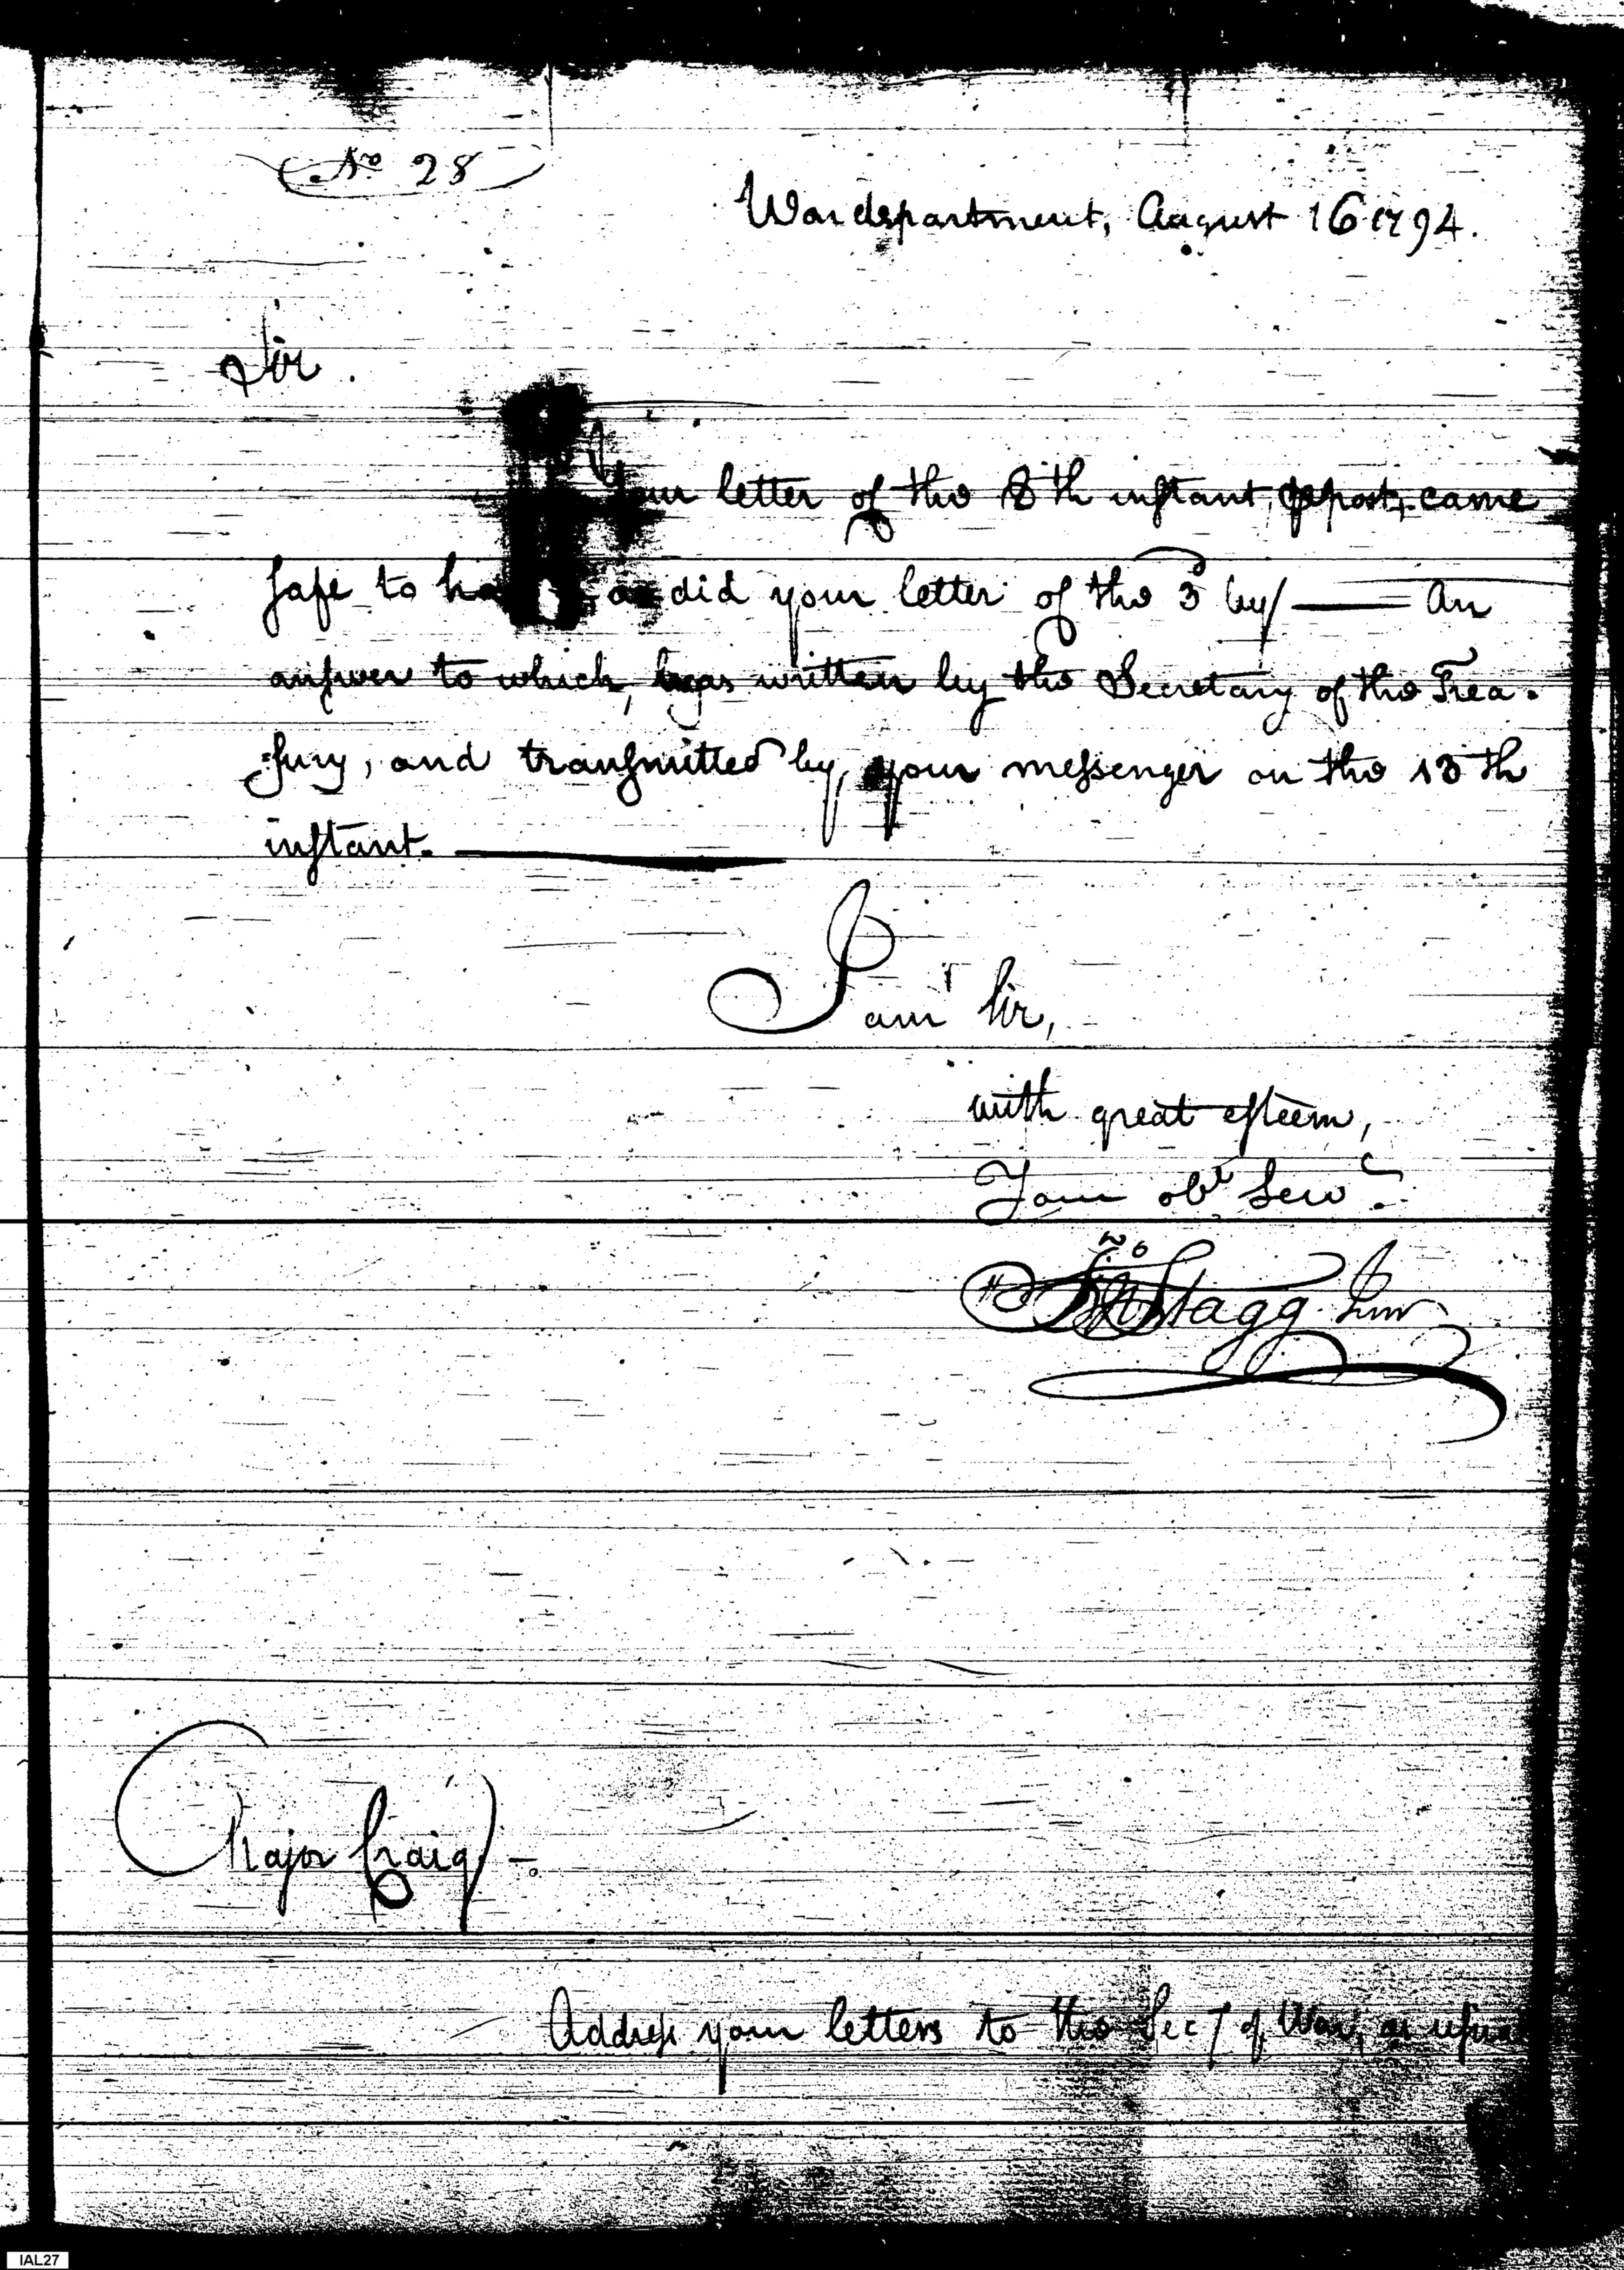 No 28
War department, August 16 1794.
Sir.
Your letter of the 8th instant, post, came
safe to as did your letter of the 3d by ——— An
answer to which, was written by the Secretary of the Trea-
sury, and transmitted by your messenger on the 13th
instant. ———
I am Sir,
with great esteem,
Your obt Servt
Jno Stagg Junr
Major Craig
Address your letters to the Secy of War, as usual
IAL27